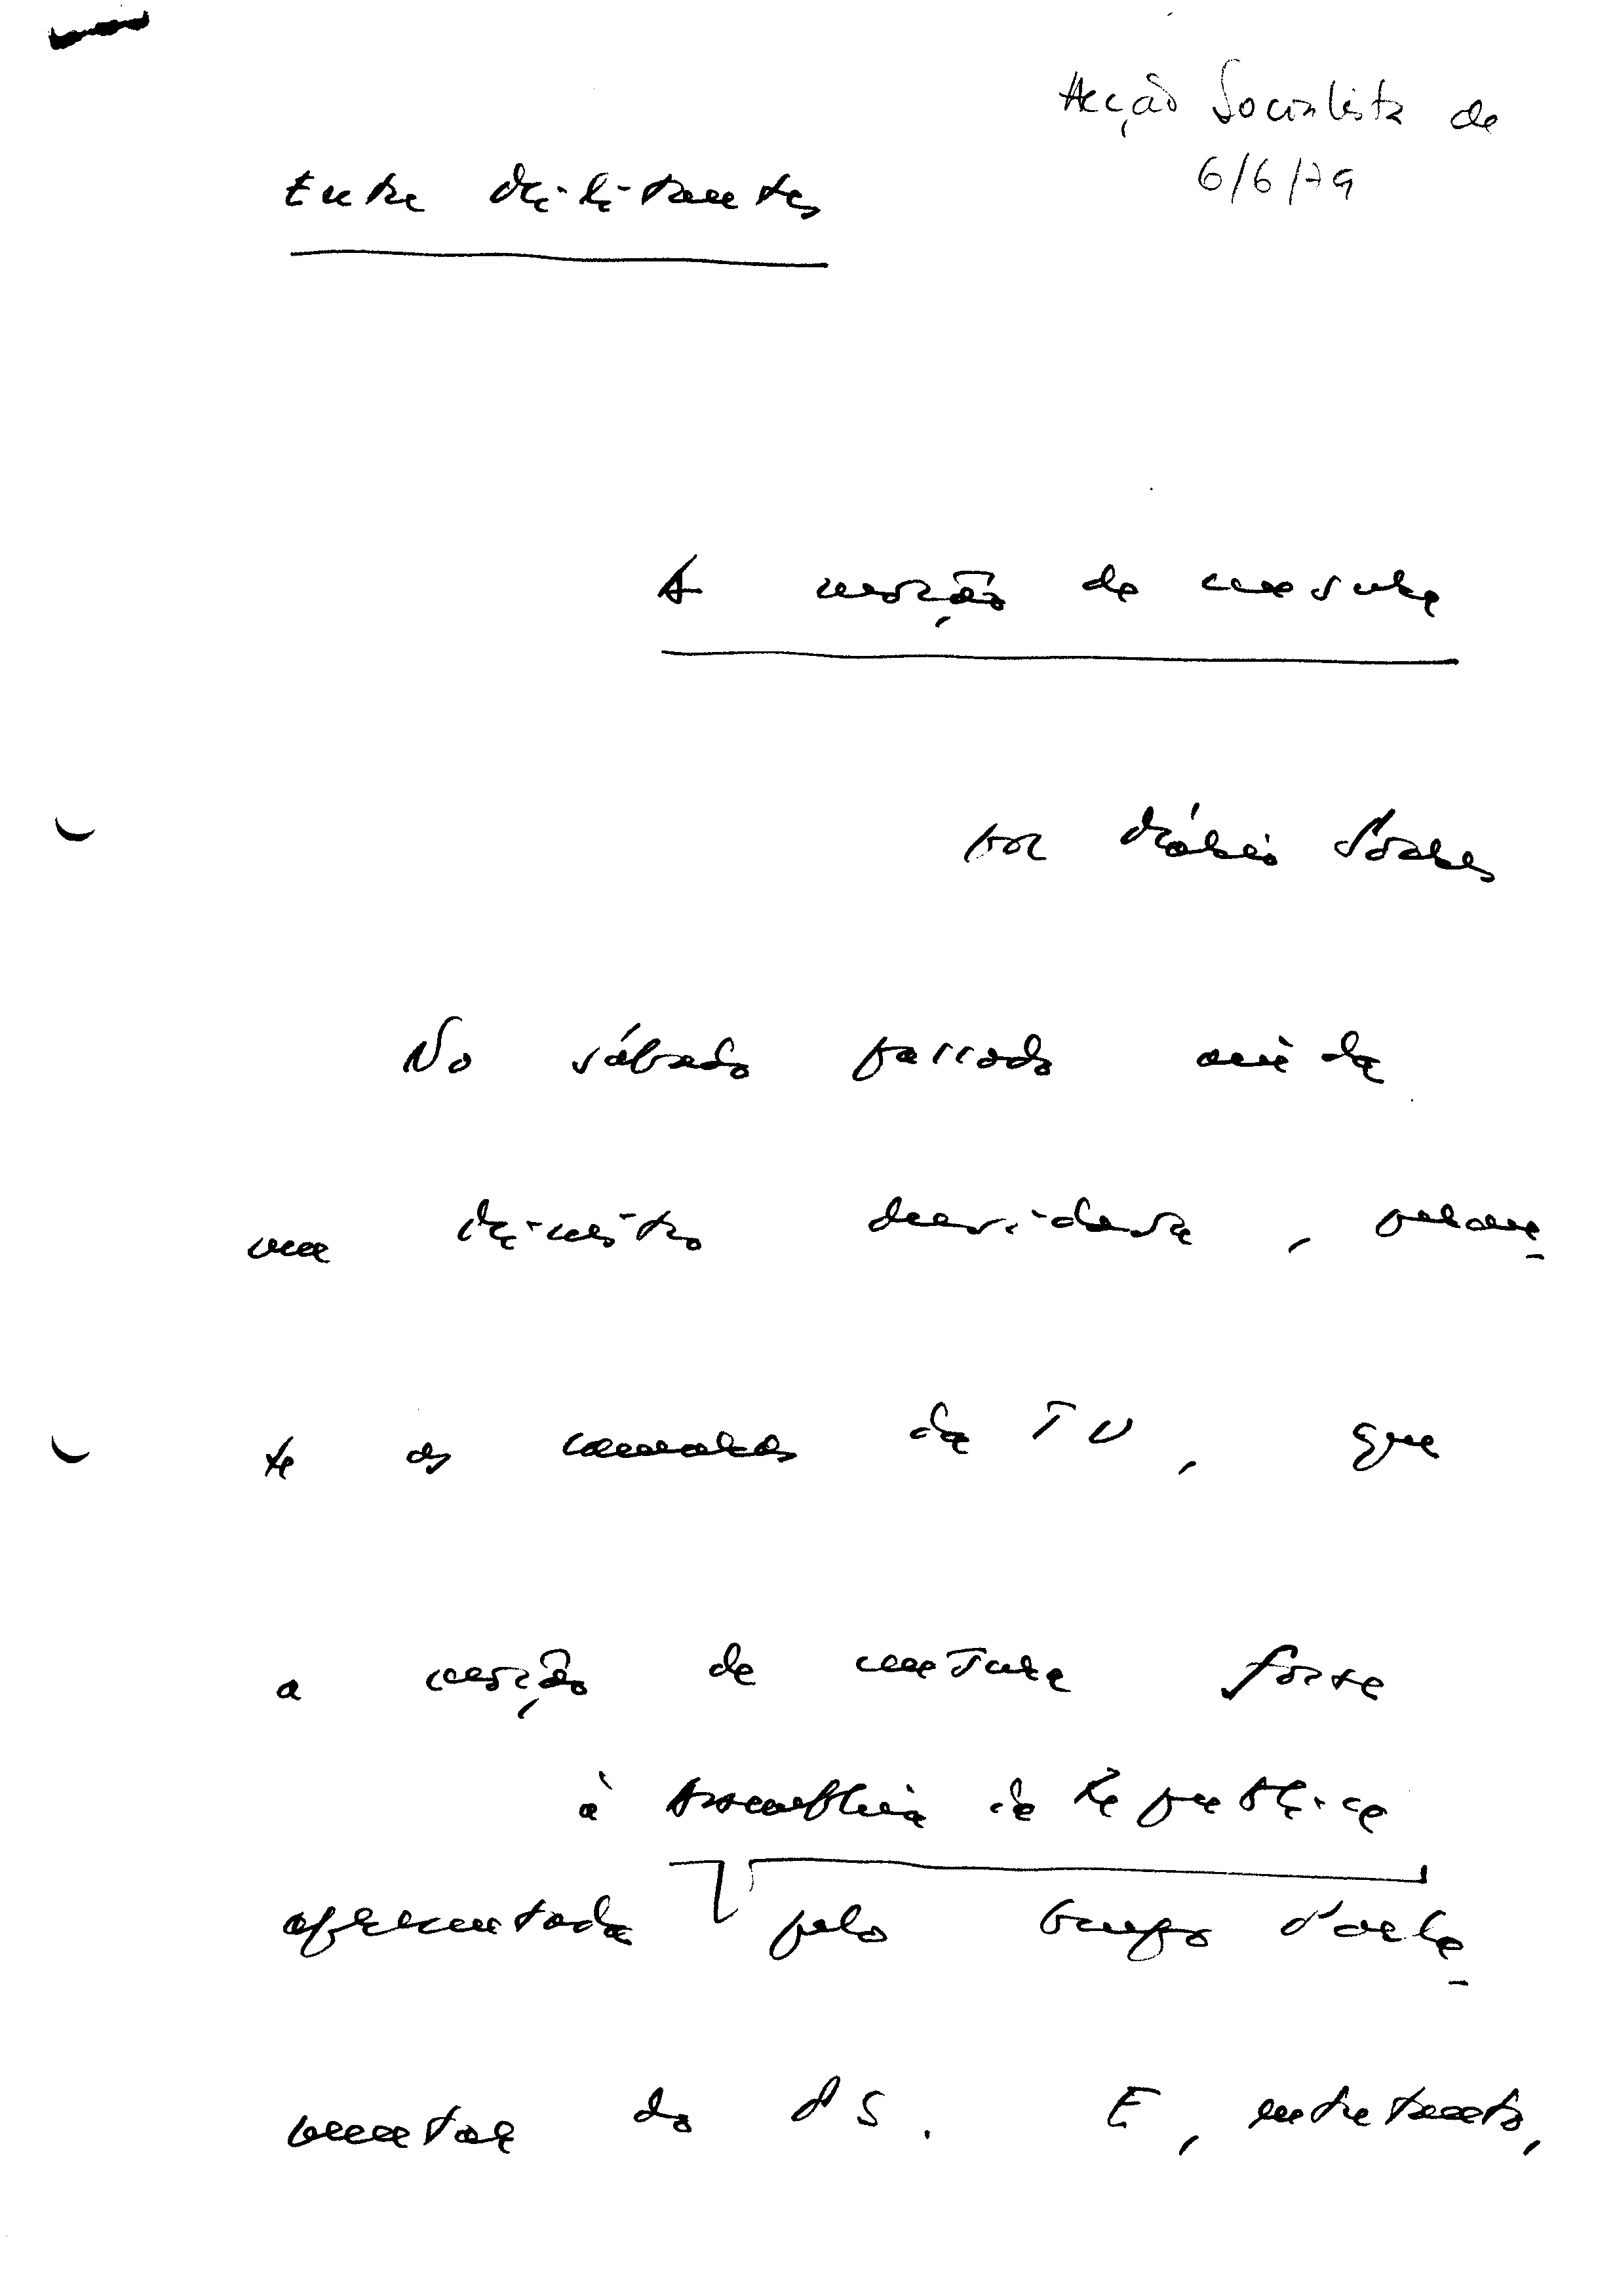 Acção Socialista de
6/6/79
Entre Militantes
A moção de censura
por Mário Soares
No sábado passado ainda
um Ministro duvidava, peran-
te as camaras da TV, que
a moção de censura fosse
à Assembleia da República
apresentada pelo Grupo Parla-
mentar do PS. E, entretanto,